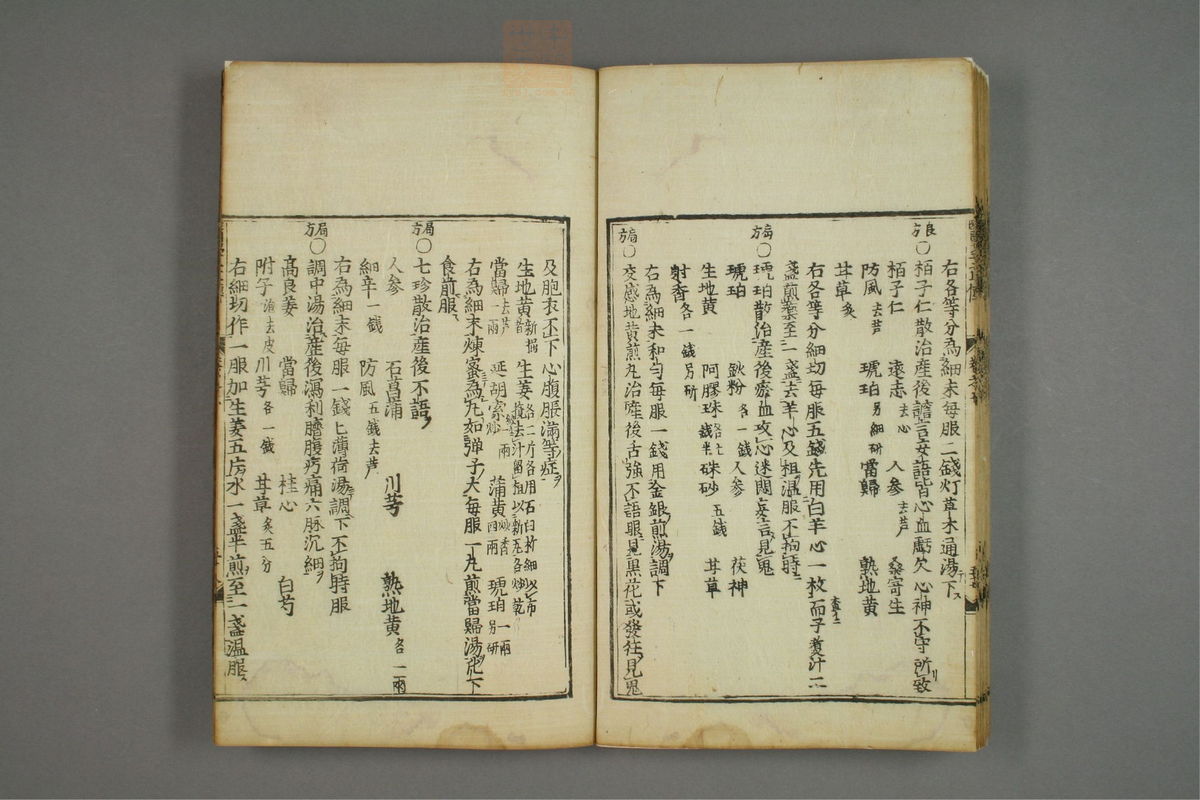 右各等分為細末每服二錢灯草木通湯下
良方
○栢子仁散治産後譫言妄語皆心血虧欠心神不守所致
栢子仁 遠志去心 人参去芦 桑寄生
防風去芦 琥珀另細研 當歸 熟地黄
甘草炙
右各等分細切每服五錢先用白羊心一枚
盞煎藥至一盞去羊心及柤温服不拘時
局方
○琥珀散治産後瘀血攻心迷悶妄言見鬼
琥珀 各一錢 人参 茯神
生地黄 阿膠珠 硃砂五錢 甘草
射香各一錢另研
右為細末和勻每服一錢用金銀煎湯調下
局方
○交感地黄煎丸治産後舌強不語眼見黒花或發狂見鬼
及胞衣不下心腹脹滿等症
生地黄 生姜
當歸去芦一兩 延胡索 蒲黄 琥珀一兩另研
右為細末煉蜜為丸如弹子大每服一丸煎當歸湯化下
食前服
局方
○七珍散治産後不語
人参 石菖蒲 川芎 熟地黄各一兩
細辛一錢 防風五錢去芦
右為細末每服一錢匕薄荷湯調下不拘時服
局方
○調中湯治産後瀉利臍腹疞痛六脉沉細
高良姜 當歸 桂心 白芍
附子去皮 川芎各一錢 甘草炙五分
右細切作一服加生姜五片水一盞半煎至一盞温服